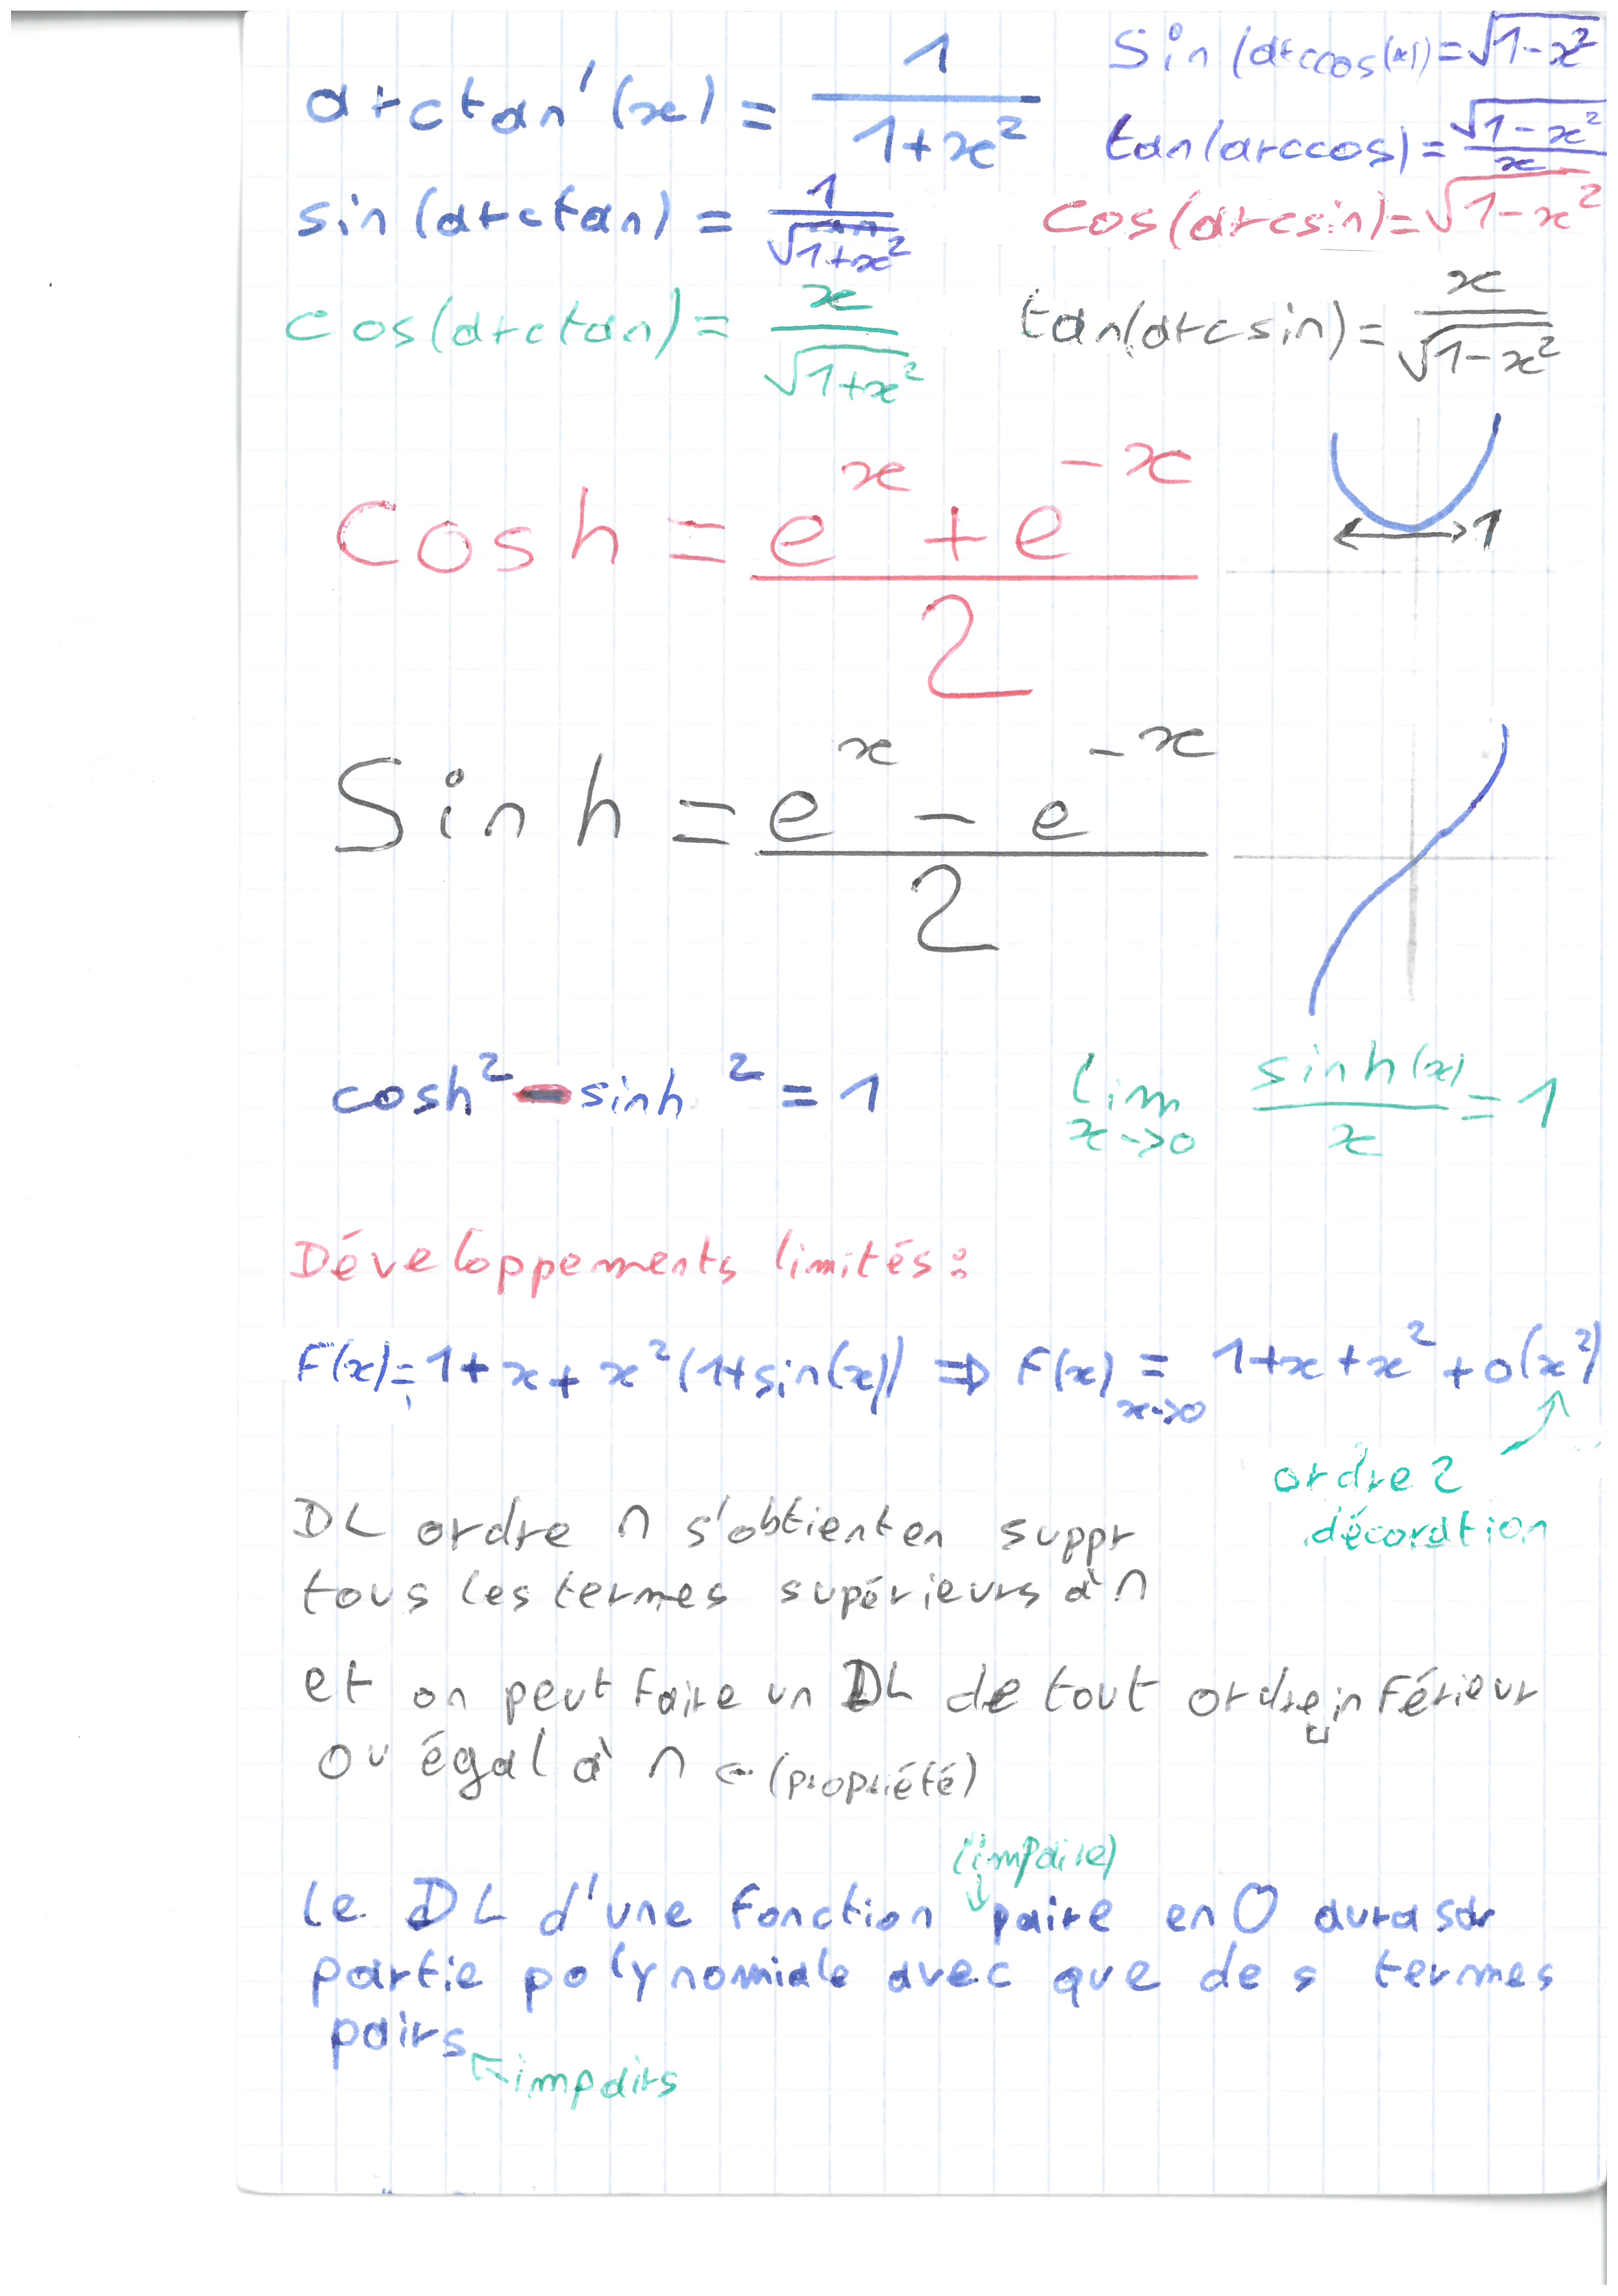 arctan'(x) = 1/(1+x²)
sin(arccos(x)) = √(1-x²)
tan(arccos) = √(1-x²)/x
sin(arctan) = 1/√(1+x²)
cos(arcsin) = √(1-x²)
cos(arctan) = x/√(1+x²)
tan(arcsin) = x/√(1-x²)
cosh = (e^x + e^-x)/2
1
Sinh = (e^x - e^-x)/2
cosh² - sinh² = 1
lim x->0 sinh(x)/x = 1
Développements limités :
F(x) = 1+x+x²(1+sin(x)) => F(x) = x->0 1+x+x²+o(x²)
ordre 2
décoration
DL ordre n s'obtient en suppr
tous les termes supérieurs à n
et on peut faire un DL de tout ordre inférieur
ou égal à n ← (propriété)
(impaire)
↓
le DL d'une fonction paire en 0 aura sa
partie polynomiale avec que des termes
pairs
← impairs